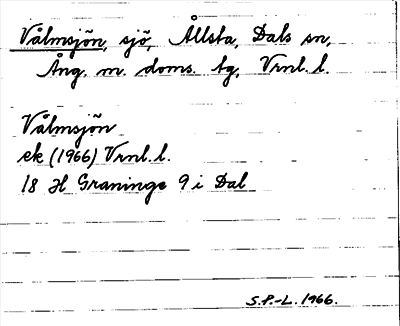 Vålmsjön, sjö, Ållsta, Dals sn,
Ång. m. doms. tg, Vrnl. l.
Vålmsjön
ek (1966) Vrnl. l.
18 H Graninge 9 i Dal
S.P.-L. 1966.